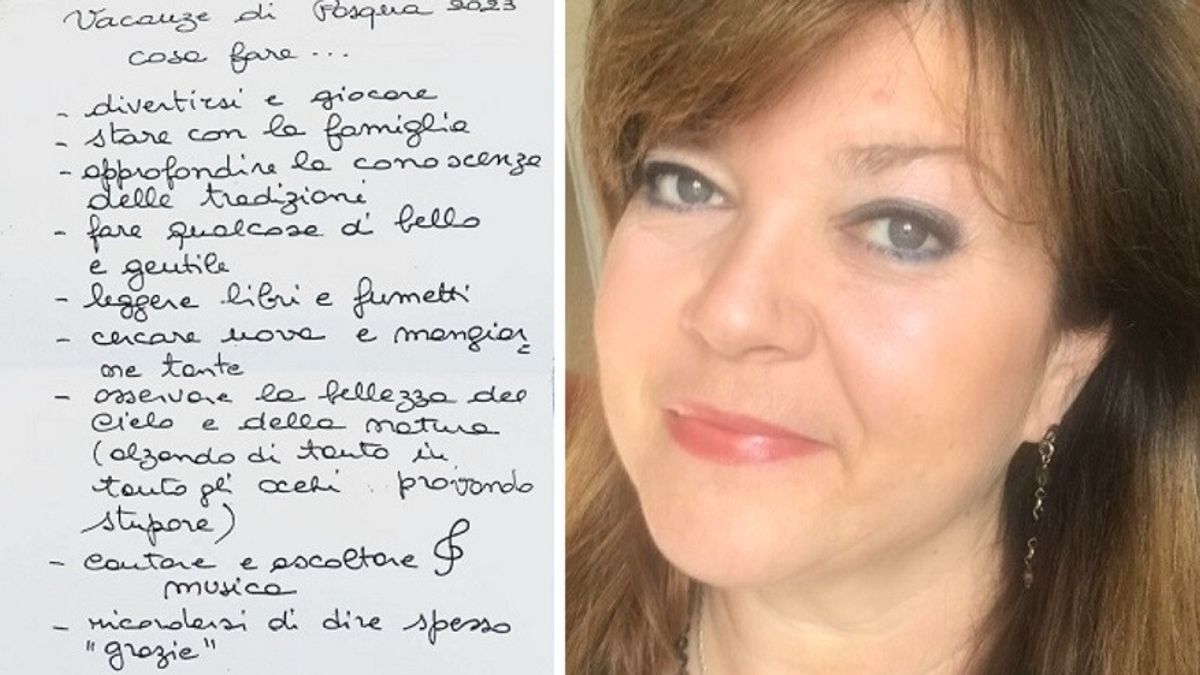 Vacanze di Pasqua 2023
cose fare...
- divertirsi e giocare
- stare con la famiglia
- approfondire la conoscenza
delle tradizioni
- fare qualcosa di bello
e gentile
- leggere libri e fumetti
- cercare uova e mangiar
ne tante
- osservare la bellezza del
cielo e della natura
(alzando di tanto in
tanto gli occhi provando
stupore)
- cantare e ascoltare
musica
- ricordarsi di dire spesso
"grazie"